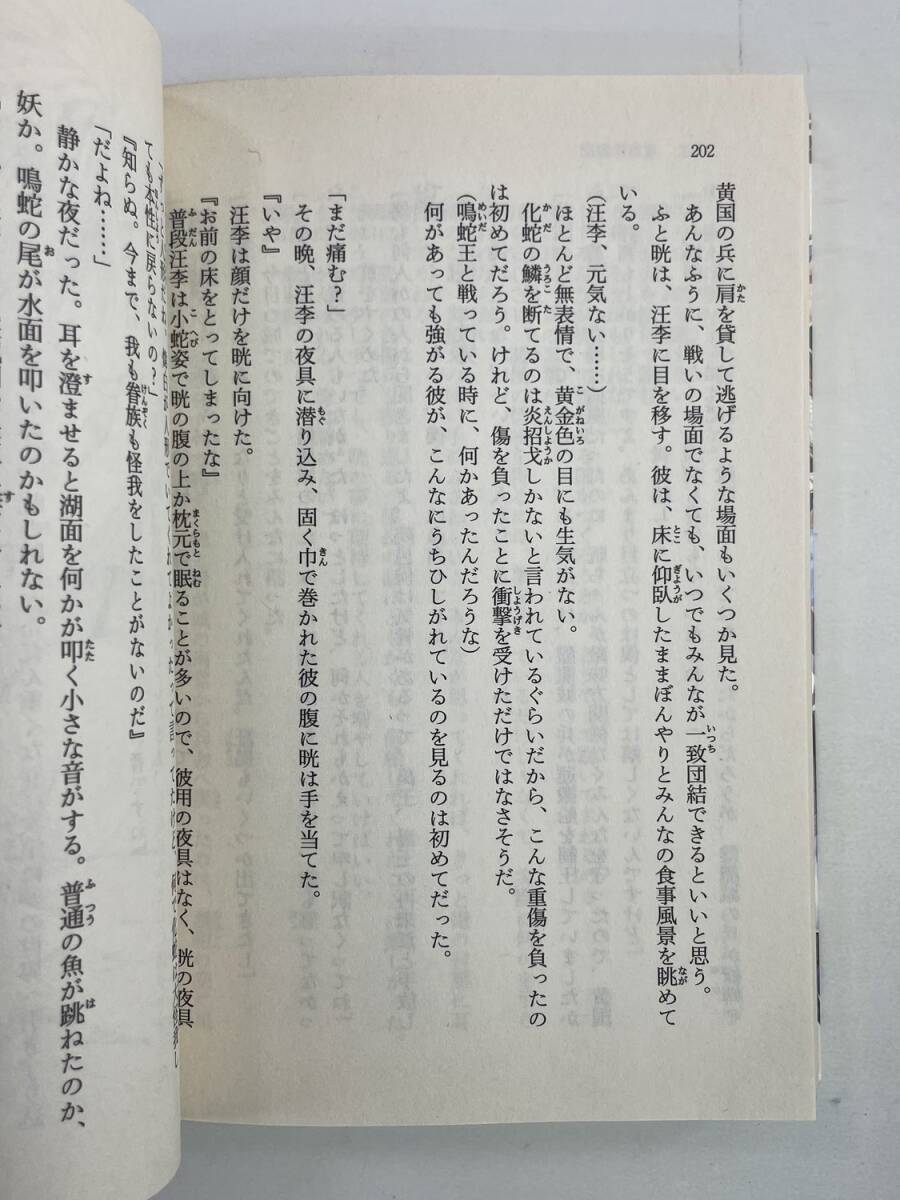 202
黄国の兵に肩を貸して逃げるような場面もいくつか見た。
あんなふうに、戦いの場面でなくても、いつでもみんなが一致団結できるといいと思う。
ふと晄は、汪李に目を移す。彼は、床に仰臥したままぼんやりとみんなの食事風景を眺めて
いる。
(汪李、元気ない……)
ほとんど無表情で、黄金色の目にも生気がない。
化蛇の鱗を断てるのは炎招戈しかないと言われているぐらいだから、こんな重傷を負ったの
は初めてだろう。けれど、傷を負ったことに衝撃を受けただけではなさそうだ。
(鳴蛇王と戦っている時に、何かあったんだろうな)
何があっても強がる彼が、こんなにうちひしがれているのを見るのは初めてだった。
「まだ痛む?」
その晩、汪李の夜具に潜り込み、固く巾で巻かれた彼の腹に晄は手を当てた。
『いや』
汪李は顔だけを晄に向けた。
『お前の床をとってしまったな』
普段汪李は小蛇姿で晄の腹の上か枕元で眠ることが多いので、彼用の夜具はなく、晄の夜具
ても本性に戻らないの?」
『知らぬ。今まで、我も眷族も怪我をしたことがないのだ』
「だよね……」
静かな夜だった。耳を澄ませると湖面を何かが叩く小さな音がする。普通の魚が跳ねたのか、
妖か。鳴蛇の尾が水面を叩いたのかもしれない。